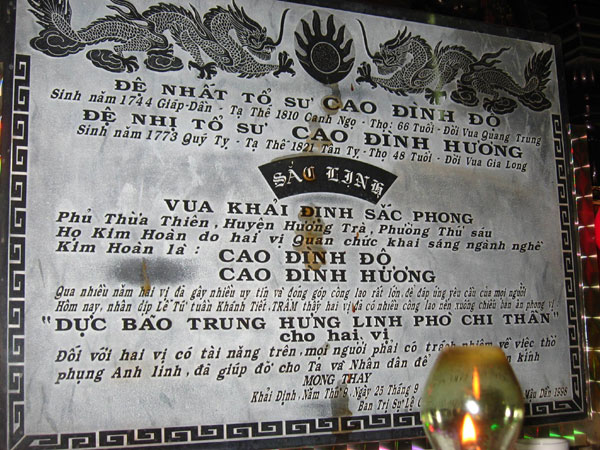 ĐỆ NHẤT TỔ SƯ CAO ĐÌNH ĐỘ
Sinh năm 1744 Giáp-Dần - Tạ Thế 1810 Canh Ngọ - Thọ: 66 Tuổi - Dời Vua Quang Trung
ĐỆ NHỊ TỔ SƯ CAO ĐÌNH HƯƠNG
Sinh năm 1773 Quý Tỵ - Tạ Thế 1821 Tân Tỵ - Thọ 48 Tuổi - Dời Vua Gia Long
SẮC LỊNH
VUA KHẢI ĐỊNH SẮC PHONG
Phủ Thừa Thiên, Huyện Hương Trà, Phường Thứ sáu
Họ Kim Hoàn do hai vị Quan chức khai sáng ngành nghề
Kim Hoàn là :
CAO ĐÌNH ĐỘ
CAO ĐÌNH HƯƠNG
Qua nhiều năm hai vị đã gây nhiều uy tín và đóng góp công lao rất lớn để đáp ứng yêu cầu của mọi người
Hôm nay, nhân dịp Lễ Tứ tuần Khánh Tiết, TRẪM thấy hai vị đã có nhiều công lao nên xuống chiếu ban ân phong vị
"DỰC BẢO TRUNG HƯNG LINH PHÒ CHI THẦN"
cho hai vị
Đối với hai vị có tài năng trên, mọi người phải có trách nhiệm về việc thờ
phụng Anh linh, đã giúp đỡ cho Ta và Nhân dân để kính
MONG THAY
Khải Định, Năm Thứ 9, Ngày 25 Tháng 9
Ban Trị Sự Lê Mậu Dần 1998